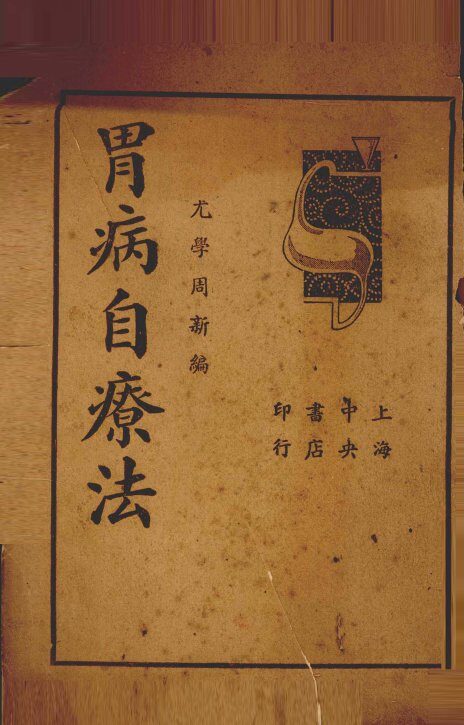 上海
中央
書店
印行
尤學周新編
胃病自療法